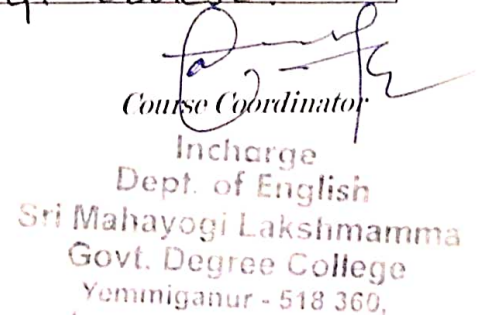 Course Coordinator
Incharge
Dept. of English
Sri Mahayogi Lakshmamma
Govt. Degree College
Yemmiganur - 518 360,